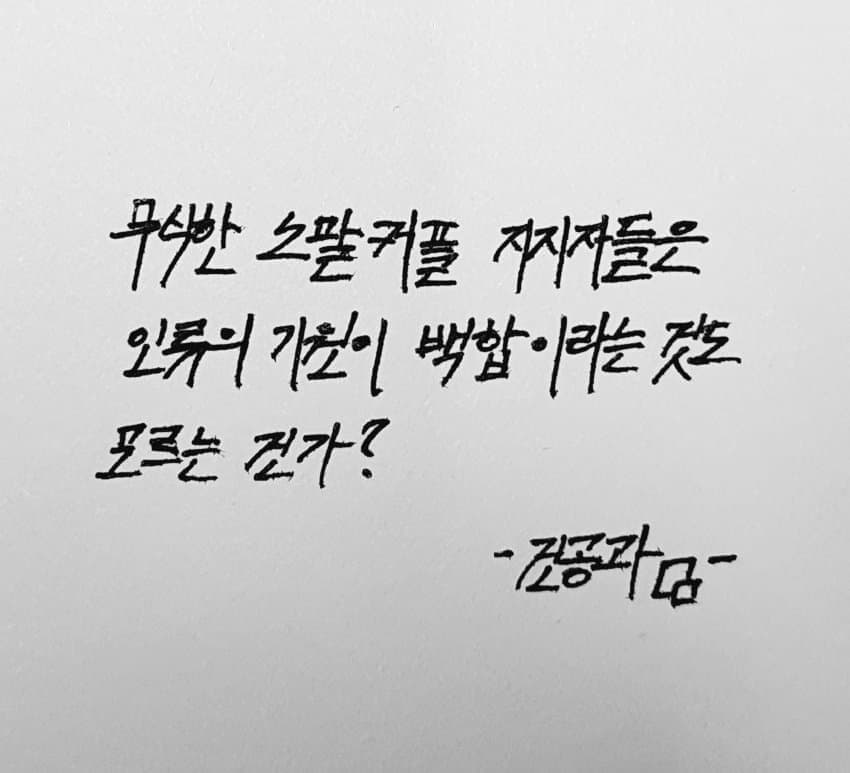 무식한 스팔커플 지지자들은
인류의 기원이 백합이라는 것도
모르는 건가?
-진공과 몸-